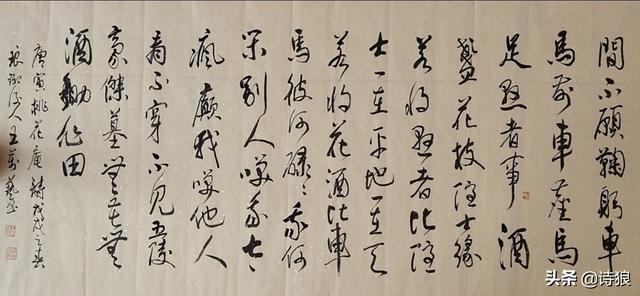 間不願鞠躬車
馬前車塵馬
足顯者事酒
盞花枝隱士緣
若將顯者比隱
士一在平地一在天
若將花酒比車
馬彼何碌々我何
閑別人笑我太
瘋癲我笑他人
看不穿不見五陵
豪傑墓無花無
酒鋤作田
唐寅桃花庵詩戊戌之春
琅琊人王
头条 @诗狼